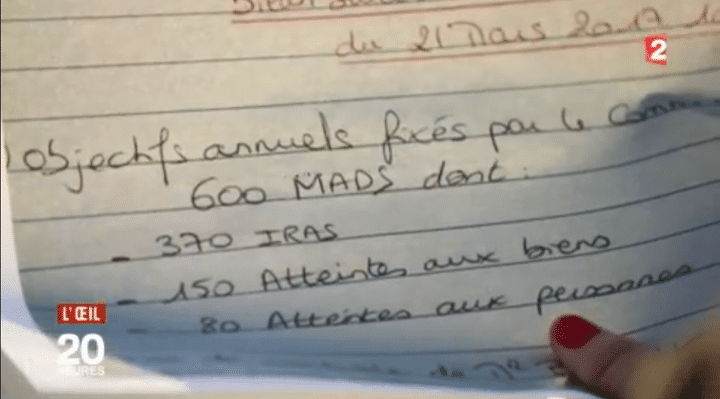 du 21 Mars 2017
2
objectifs annuels fixés par le
600 MADS dont :
- 370 IRAS
- 150 Atteintes aux biens
- 80 Atteintes aux personnes
L'ŒIL
20
HEURES